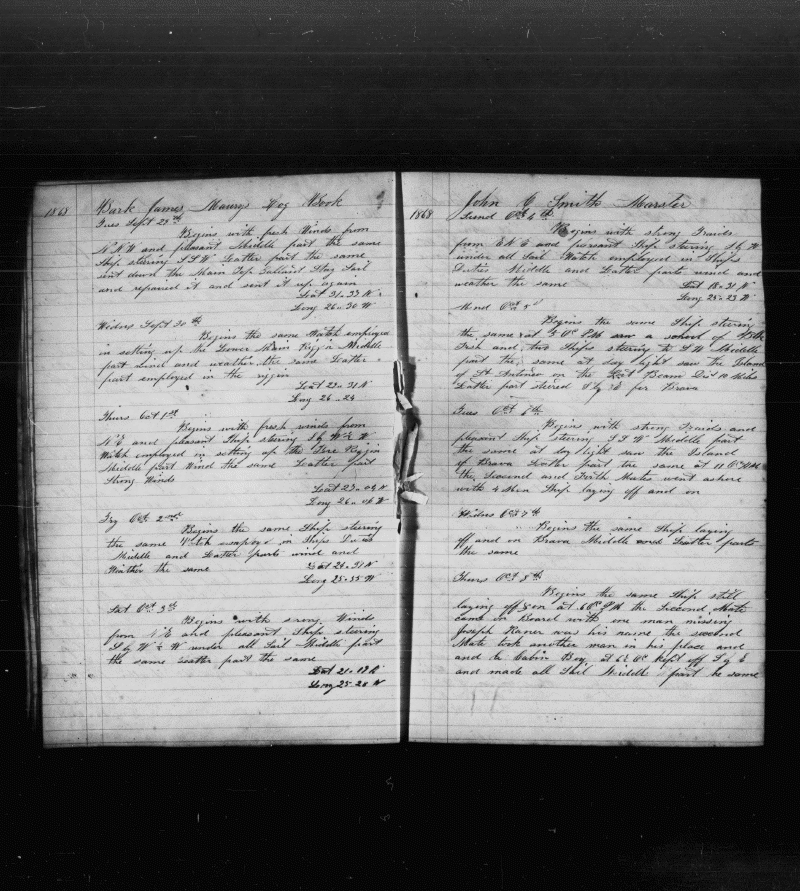 1868 Bark James Maurys Log Book
Tues Sept 29th
Begins with fresh Winds from
N.N.W and pleasant Middle part the same
Ship steering S.S.W Latter part the same
sent down the Main Top Gallant Stay Sail
and repaired it and sent it up again
Lat 31..37 N
Long 26..30 W
Wedns Sept 30th
Begins the same Watch employed
in setting up the Lower Main Riggin Middle
part wind and weather the same Latter
part employed in the riggin
Lat 29..31 N
Long 26..24
Thurs Oct 1st
Begins with fresh winds from
N.E and pleasant Ship steering S by W ½ W
Watch employed in setting up the Fore Riggin
Middle part Wind the same Latter part
Strong Winds
Lat 27..04 N
Long 26..06 W
Fry Oct 2nd
Begins the same Ship steering
the same Watch employed in Ships Duties
Middle and Latter parts wind and
Weather the same Lat 24..31 N
Long 25..55 W
Sat Oct 3d
Begins with strong Winds
from N.E and pleasant Ship steering
S by W ½ W under all Sail Middle part
the same Latter part the same
Lat 21..19 N
Long 25..28 W
1868 John C Smith Marster
Sund Oct 4th
Begins with strong Traids
from E.N.E and pleasant Ship steering S by W
under all Sail Watch employed in Ships
Duties Middle and Latter parts wind and
weather the same Lat 18..31 N
Long 25..23 W
Mond Oct 5th
Begins the same Ship steering
the same at 5 Oc P.M saw a school of
Fish and two Ships steering to S.W Middle
part the same at day light saw the Island
of St Antonio on the Beam Dis 10 Miles
Latter part steered S by E for Brava
Tues Oct 6th
Begins with strong Traids and
pleasant Ship steering S.S.W Middle part
the same at day light saw the Island
of Brava Latter part the same at 11 Oc A.M
the Second and Forth Mates went ashore
with 4 Men Ship laying off and on
Wedns Oct 7th
Begins the same Ship laying
off and on Brava Middle and Latter parts
the same
Thurs Oct 8th
Begins the same Ship still
laying off & on at 6 Oc P.M the Second Mate
came on Board with one man missing
Joseph Raner was his name the second
Mate took another man in his place and
and a Cabin Boy at 6½ Oc Kept off S by E
and made all Sail Middle part the same